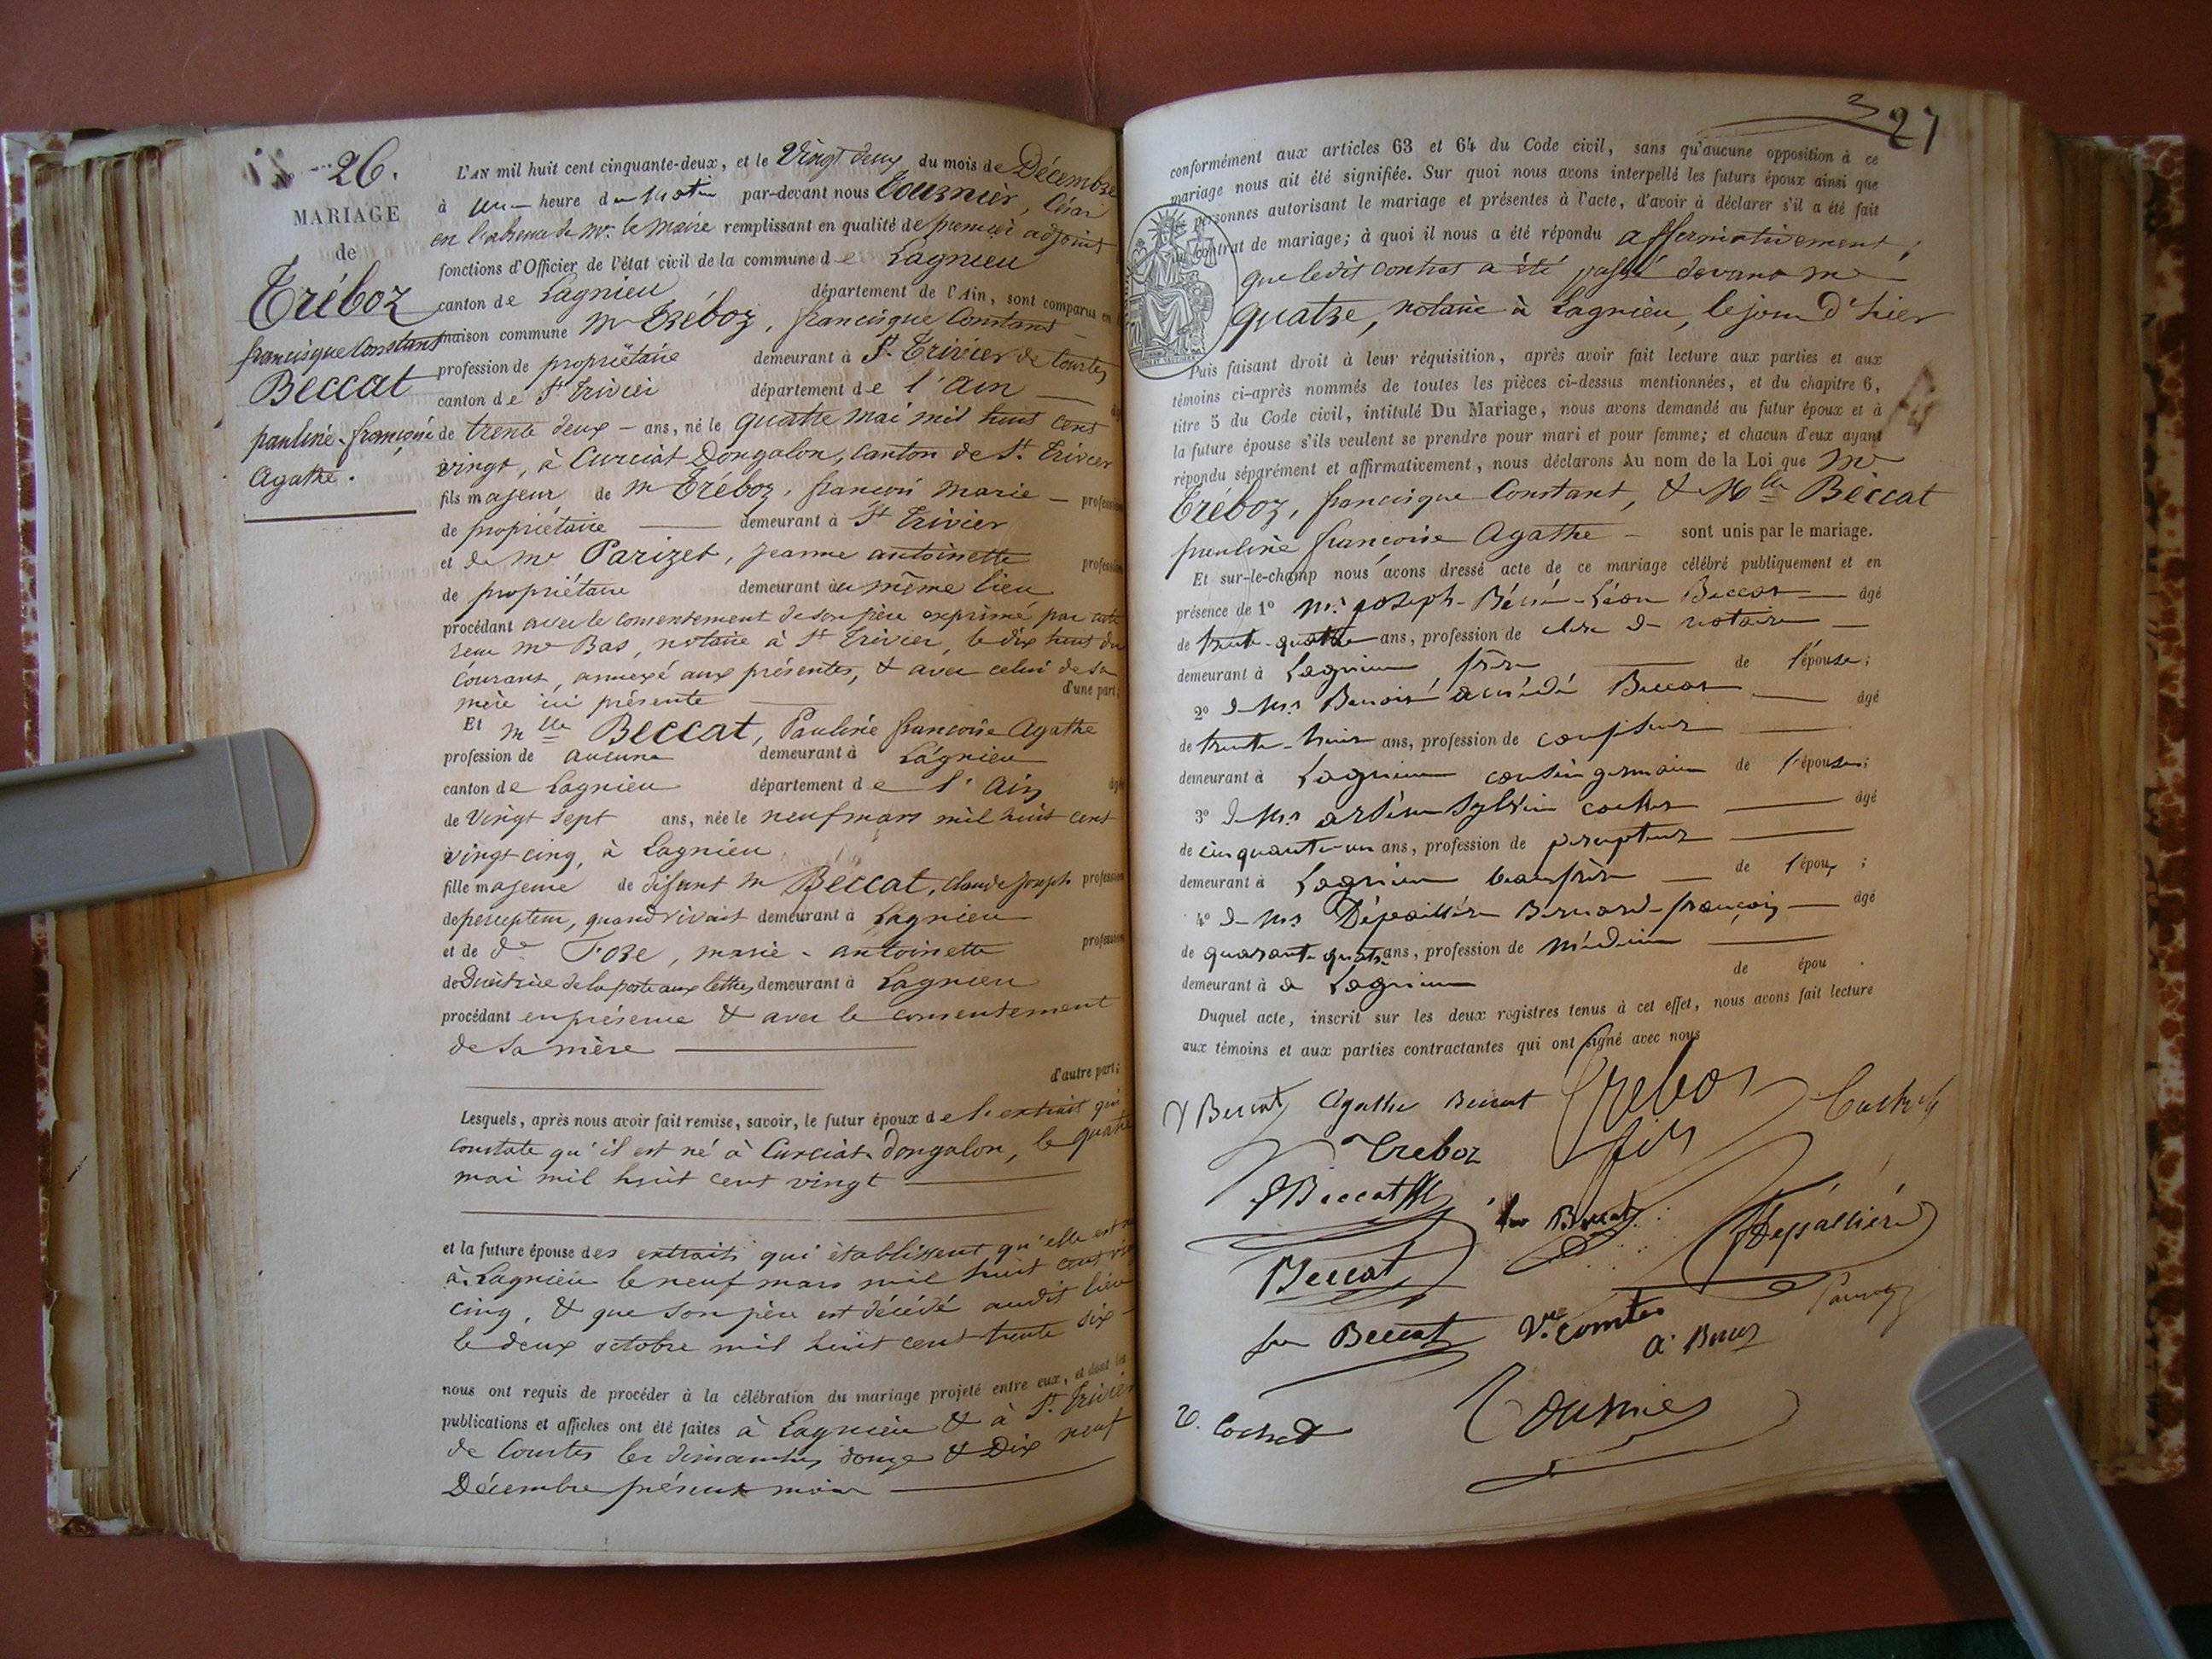 26.
MARIAGE
de
Tréboz
francisque Constant
Beccat
pauline françoise
Agathe.
L'AN mil huit cent cinquante-deux, et le Vingt deux du mois de Décembre
à une heure du Matin par-devant nous Tournier, César
en l'absence de Mr. le Maire remplissant en qualité de premier adjoint
fonctions d'Officier de l'état civil de la commune de Lagnieu
canton de Lagnieu département de l'Ain, sont comparus en
maison commune Mr Tréboz, francisque Constant
profession de propriétaire demeurant à St. Trivier de Courtes
canton de St Trivier département de l'Ain
de trente deux ans, né le quatre mai mil huit cent
vingt, à Curciat Dongalon, Canton de St. Trivier
fils majeur de M Tréboz, françois Marie profession
de propriétaire demeurant à St Trivier
et de Me Parizet, jeanne antoinette profession
de propriétaire demeurant au même lieu
procédant avec le consentement de son père exprimé par acte
reçu Me Bas, notaire à St Trivier, le dix huit du
Courant, annexé aux présentes, & avec celui de sa
mère ici présente d'une part;
Et Mlle Beccat, Pauline françoise Agathe
profession de aucune demeurant à Lagnieu
canton de Lagnieu département de l'Ain âgée
de Vingt sept ans, née le neuf mars mil huit cent
vingt-cinq, à Lagnieu
fille majeure de défunt M Beccat, claude joseph profession
de percepteur, quand vivait demeurant à Lagnieu
et de De Foze, marie-antoinette profession
de Directrice de la poste aux lettres demeurant à Lagnieu
procédant en présence & avec le consentement
de sa mère
d'autre part;
Lesquels, après nous avoir fait remise, savoir, le futur époux de l'extrait qui
constate qu'il est né à Curciat-Dongalon, le quatre
mai mil huit cent vingt
et la future épouse des extraits qui établissent qu'elle est
à Lagnieu le neuf mars mil huit cent
cinq, & que son père est décédé audit lieu
le deux octobre mil huit cent trente six
nous ont requis de procéder à la célébration du mariage projeté entre eux, et dont les
publications et affiches ont été faites à Lagnieu & à St. Trivier
de Courtes les dimanches douze & Dix neuf
Décembre présent mois
27
conformément aux articles 63 et 64 du Code civil, sans qu'aucune opposition à ce
mariage nous ait été signifiée. Sur quoi nous avons interpellé les futurs époux ainsi que
personnes autorisant le mariage et présentes à l'acte, d'avoir à déclarer s'il a été fait
contrat de mariage; à quoi il nous a été répondu affirmativement,
que ledit contrat a été passé devant Me
Quatre, notaire à Lagnieu, le jour d'hier
Puis faisant droit à leur réquisition, après avoir fait lecture aux parties et aux
témoins ci-après nommés de toutes les pièces ci-dessus mentionnées, et du chapitre 6,
titre 5 du Code civil, intitulé Du Mariage, nous avons demandé au futur époux et à
la future épouse s'ils veulent se prendre pour mari et pour femme; et chacun d'eux ayant
répondu séparément et affirmativement, nous déclarons Au nom de la Loi que Mr
Tréboz, francisque Constant, & Mlle Beccat
pauline françoise Agathe sont unis par le mariage.
Et sur-le-champ nous avons dressé acte de ce mariage célébré publiquement et en
présence de 1º Mr joseph-Réné-Léon Beccat âgé
de trente-quatre ans, profession de clerc de notaire
demeurant à Lagnieu frère de l'épouse;
2º de Mr Benoit Amédé Beccat âgé
de trente-huit ans, profession de
demeurant à Lagnieu cousin germain de l'épouse;
3º de Mr arsène Sylvin cochet âgé
de cinquante-un ans, profession de percepteur
demeurant à Lagnieu beaufrère de l'époux;
4º de Mr Dépaillière Bernard-françois âgé
de quarante quatre ans, profession de médecin
demeurant à Lagnieu de épou .
Duquel acte, inscrit sur les deux registres tenus à cet effet, nous avons fait lecture
aux témoins et aux parties contractantes qui ont signé avec nous
Beccat Agathe Beccat Treboz fils
Treboz
Beccat
Beccat
Dépallière
Beccat Vve comte
Cochet
Tournier